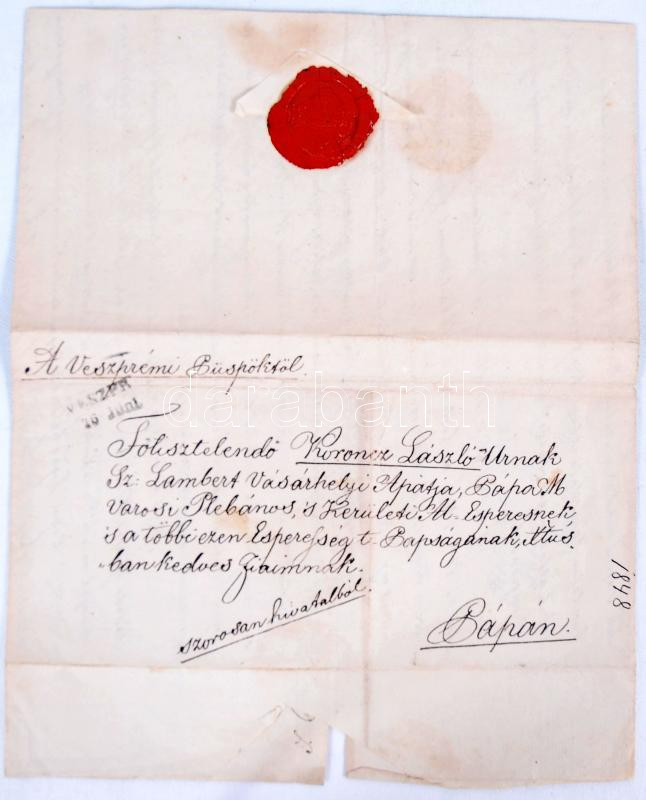 A Veszprémi Püspöktöl.
VESZPR
26 Juni
Főtisztelendő Koroncz László Urnak
Sz: Lambert Vásárhelyi Apátja, Pápa M
városi Plebános, s Kerületi Al-Esperesnek
is a többi ezen Esperesség t- Papságának, Xtus
ban kedves Fiaimnak.
szorosan hivatalból.
Pápán.
1848
darabanth